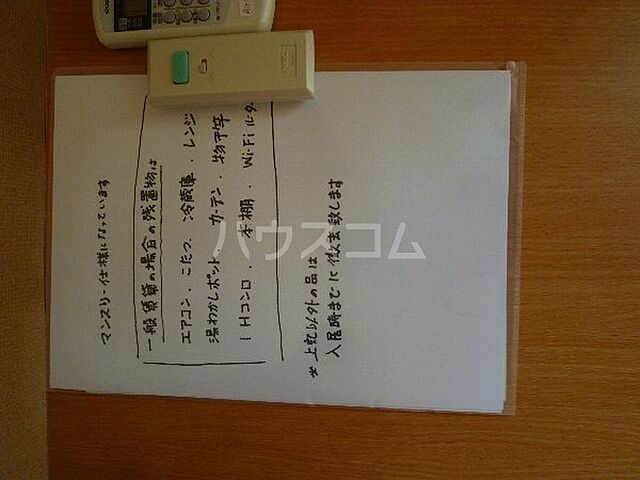 マンスリー仕様になっています
一般賃貸の場合の残置物は
エアコン．こたつ．冷蔵庫．レンジ
湯わかしポット．カーテン．物干竿
IHコンロ．本棚．Wi-Fiルータ
※上記以外の品は
入居時までに撤去致します
ハウスコム